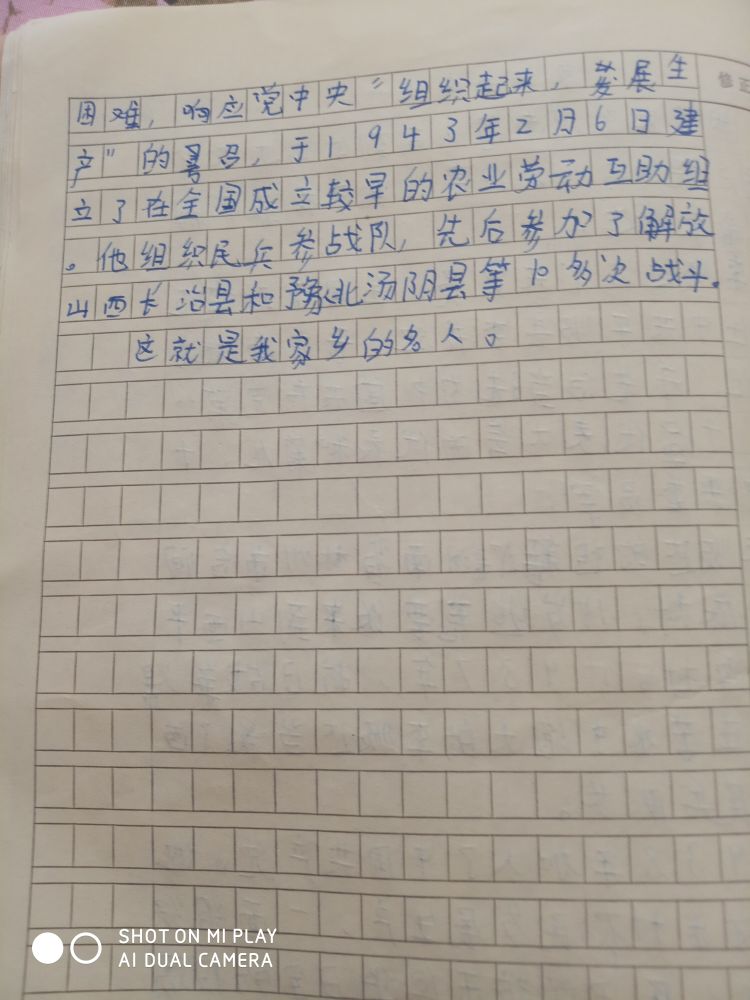 困难，响应党中央“组织起来，发展生
产”的号召，于1943年2月6日建
立了在全国成立较早的农业劳动互助组
。他组织民兵参战队，先后参加了解放
山西长治县和豫北汤阴县等10多次战斗。
这就是我家乡的名人。
修正
SHOT ON MI PLAY
AI DUAL CAMERA